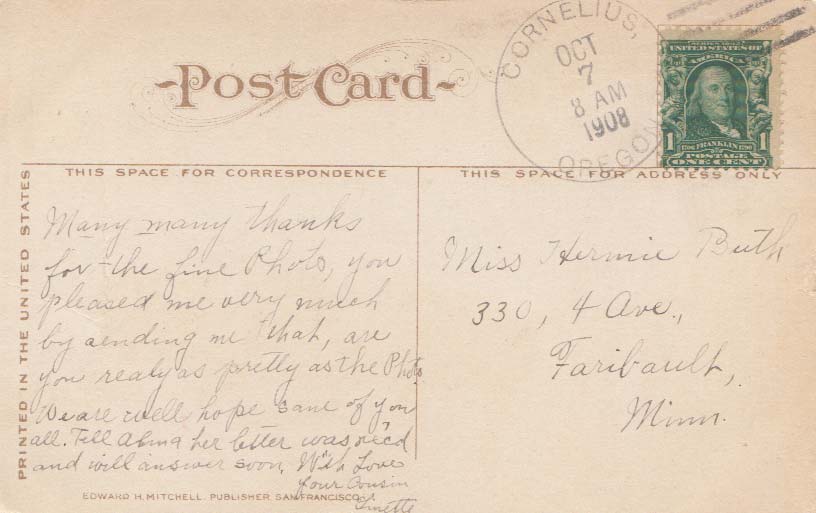 Post Card
CORNELIUS,
OCT
7
8 AM
1908
OREGON
SERIES 1902
UNITED STATES OF
AMERICA
1 1706 FRANKLIN 1790 1
POSTAGE
ONE CENT
THIS SPACE FOR CORRESPONDENCE
THIS SPACE FOR ADDRESS ONLY
PRINTED IN THE UNITED STATES
Many many thanks
for the fine Photo, you
pleased me very much
by sending me that, are
you realy as pretty as the Photo
We are well hope same of you
all. Tell Alma her letter was rec'd
and will answer soon, With Love
your Cousin
Miss Hermie Buth
330, 4 Ave.,
Faribault,
Minn.
EDWARD H. MITCHELL, PUBLISHER, SAN FRANCISCO